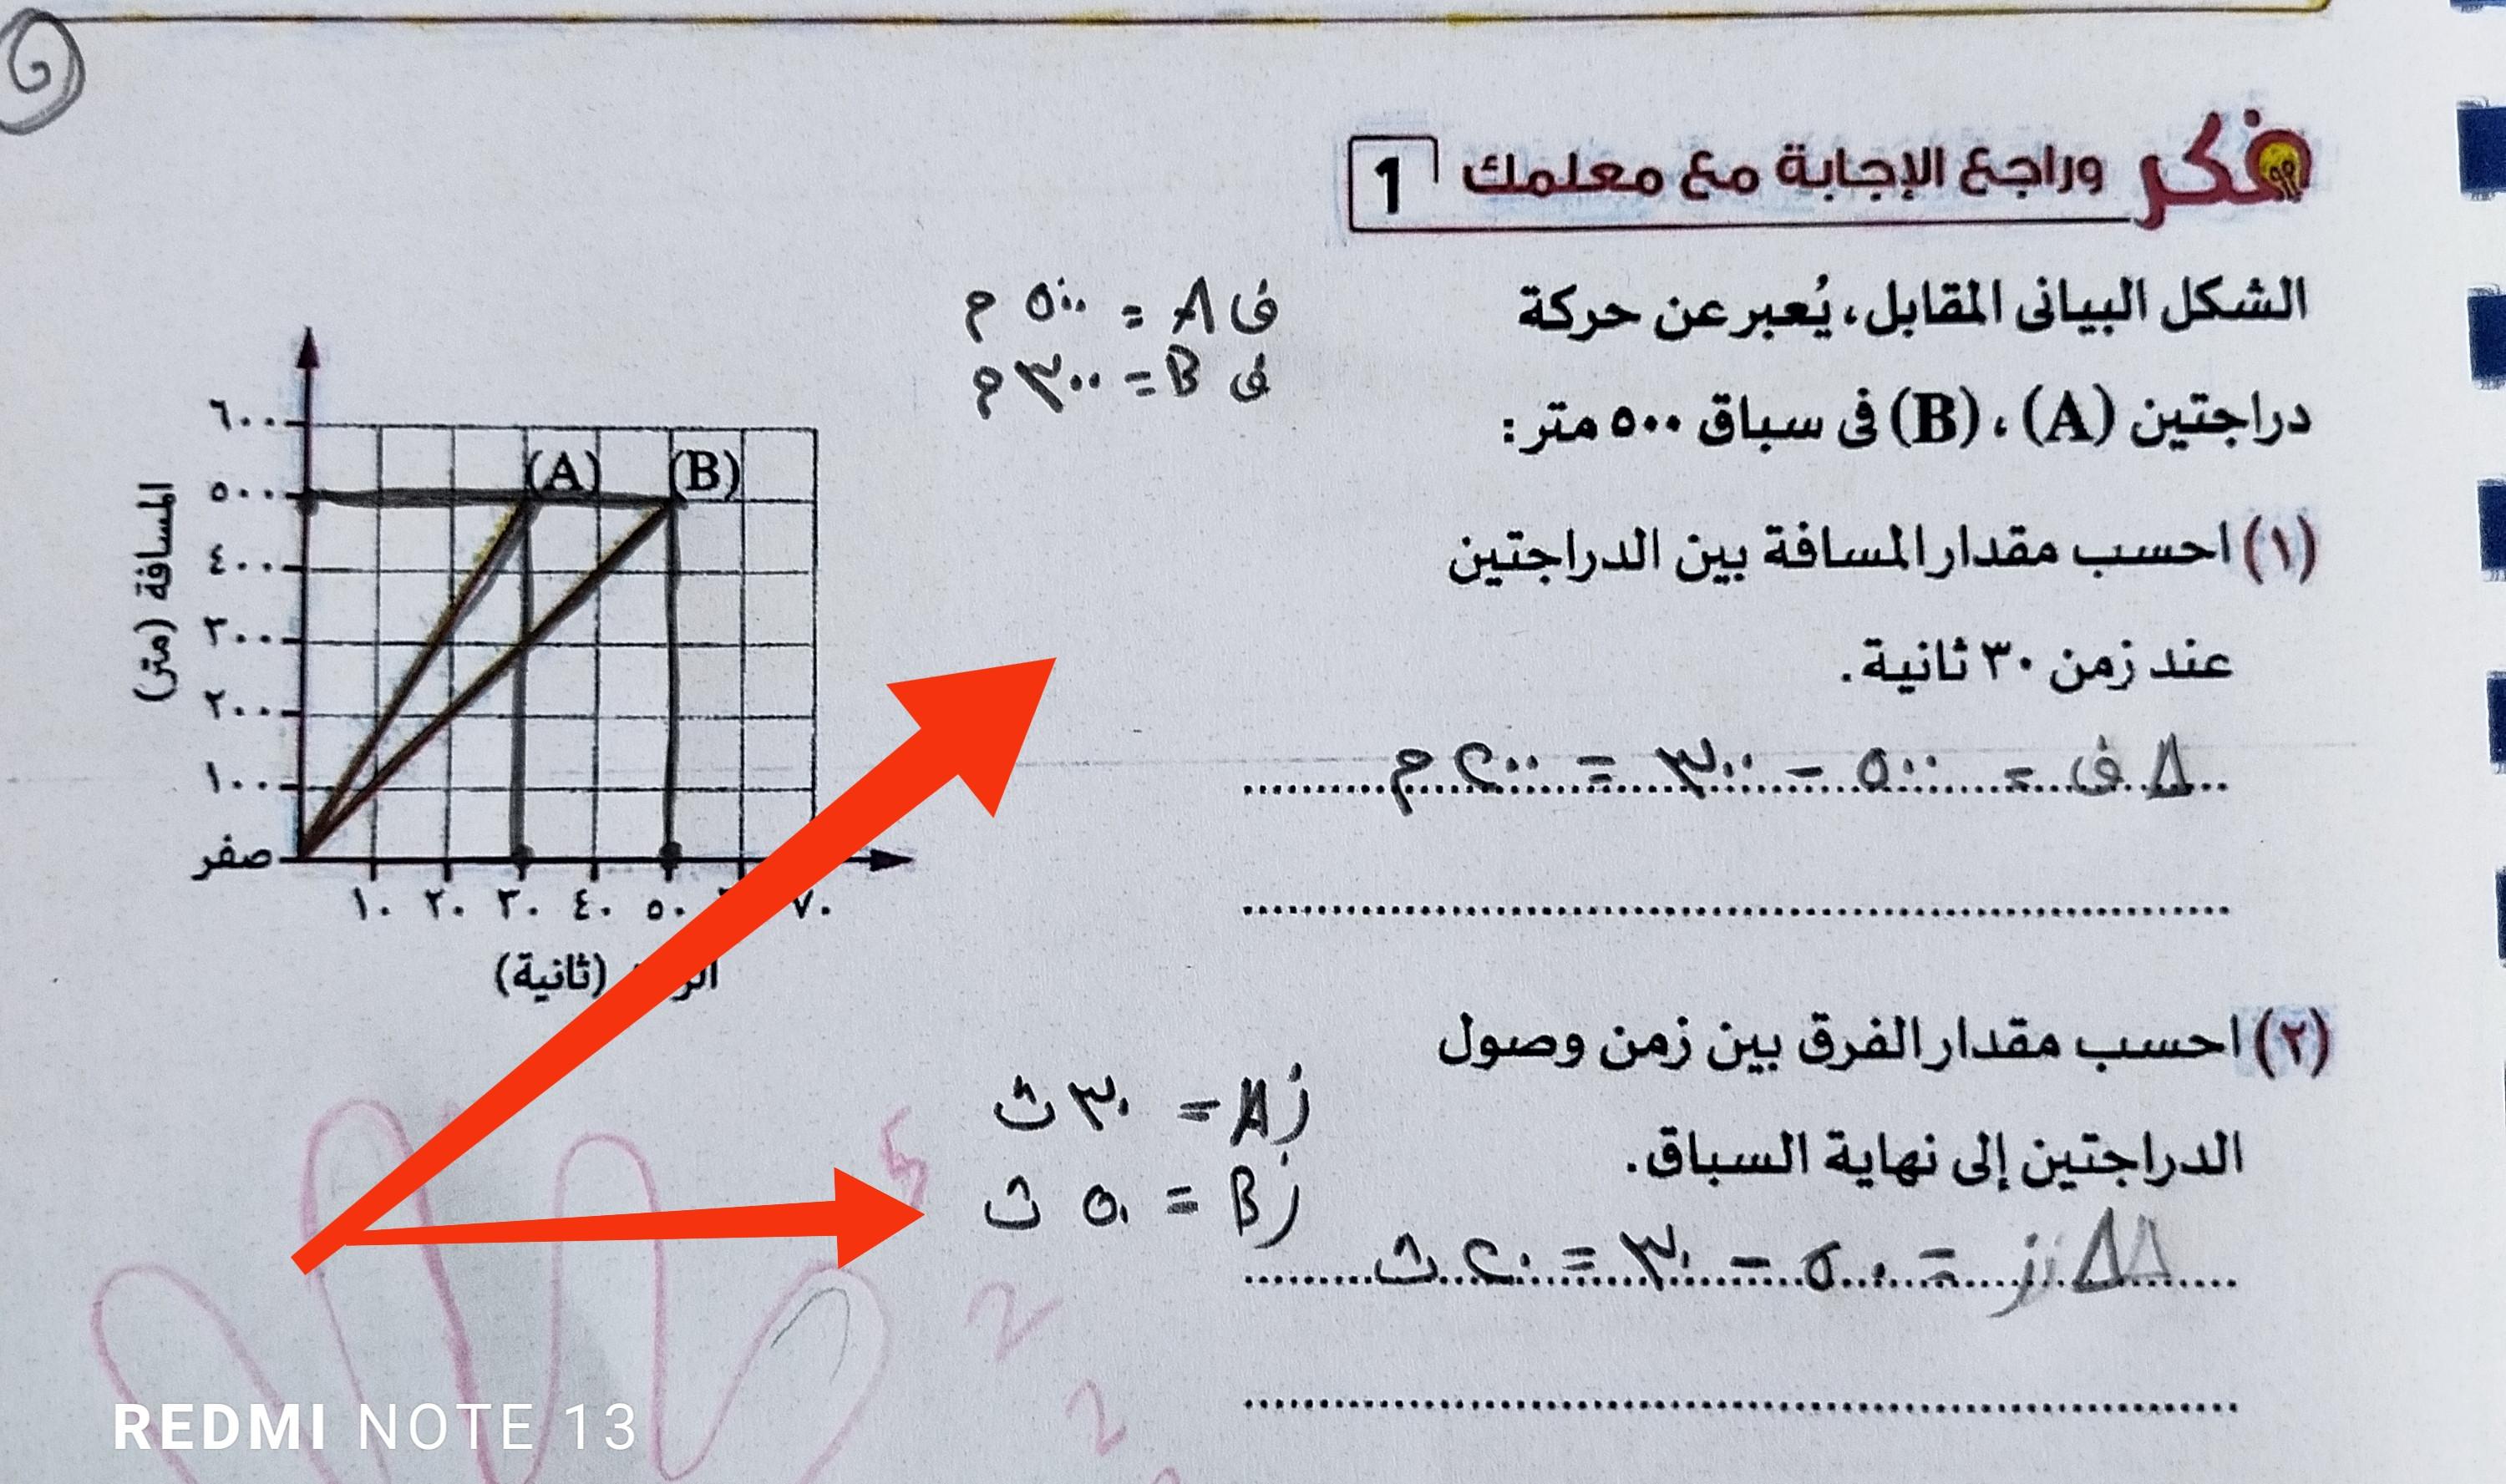 فكر وراجع الإجابة مع معلمك 1
الشكل البيانى المقابل، يُعبر عن حركة
دراجتين (A)، (B) فى سباق ٥٠٠ متر:
ف A = ٥٠٠ م
ف B = ٣٠٠ م
(١) احسب مقدار المسافة بين الدراجتين
عند زمن ٣٠ ثانية.
Δ ف = ٥٠٠ - ٣٠٠ = ٢٠٠ م
(٢) احسب مقدار الفرق بين زمن وصول
الدراجتين إلى نهاية السباق.
ز A = ٣٠ ث
ز B = ٥٠ ث
Δ ز = ٥٠ - ٣٠ = ٢٠ ث
المسافة (متر)
٦٠٠
٥٠٠
٤٠٠
٣٠٠
٢٠٠
١٠٠
صفر
(A) (B)
١٠ ٢٠ ٣٠ ٤٠ ٥٠ ٧٠
(ثانية)
5
2
2
REDMI NOTE 13